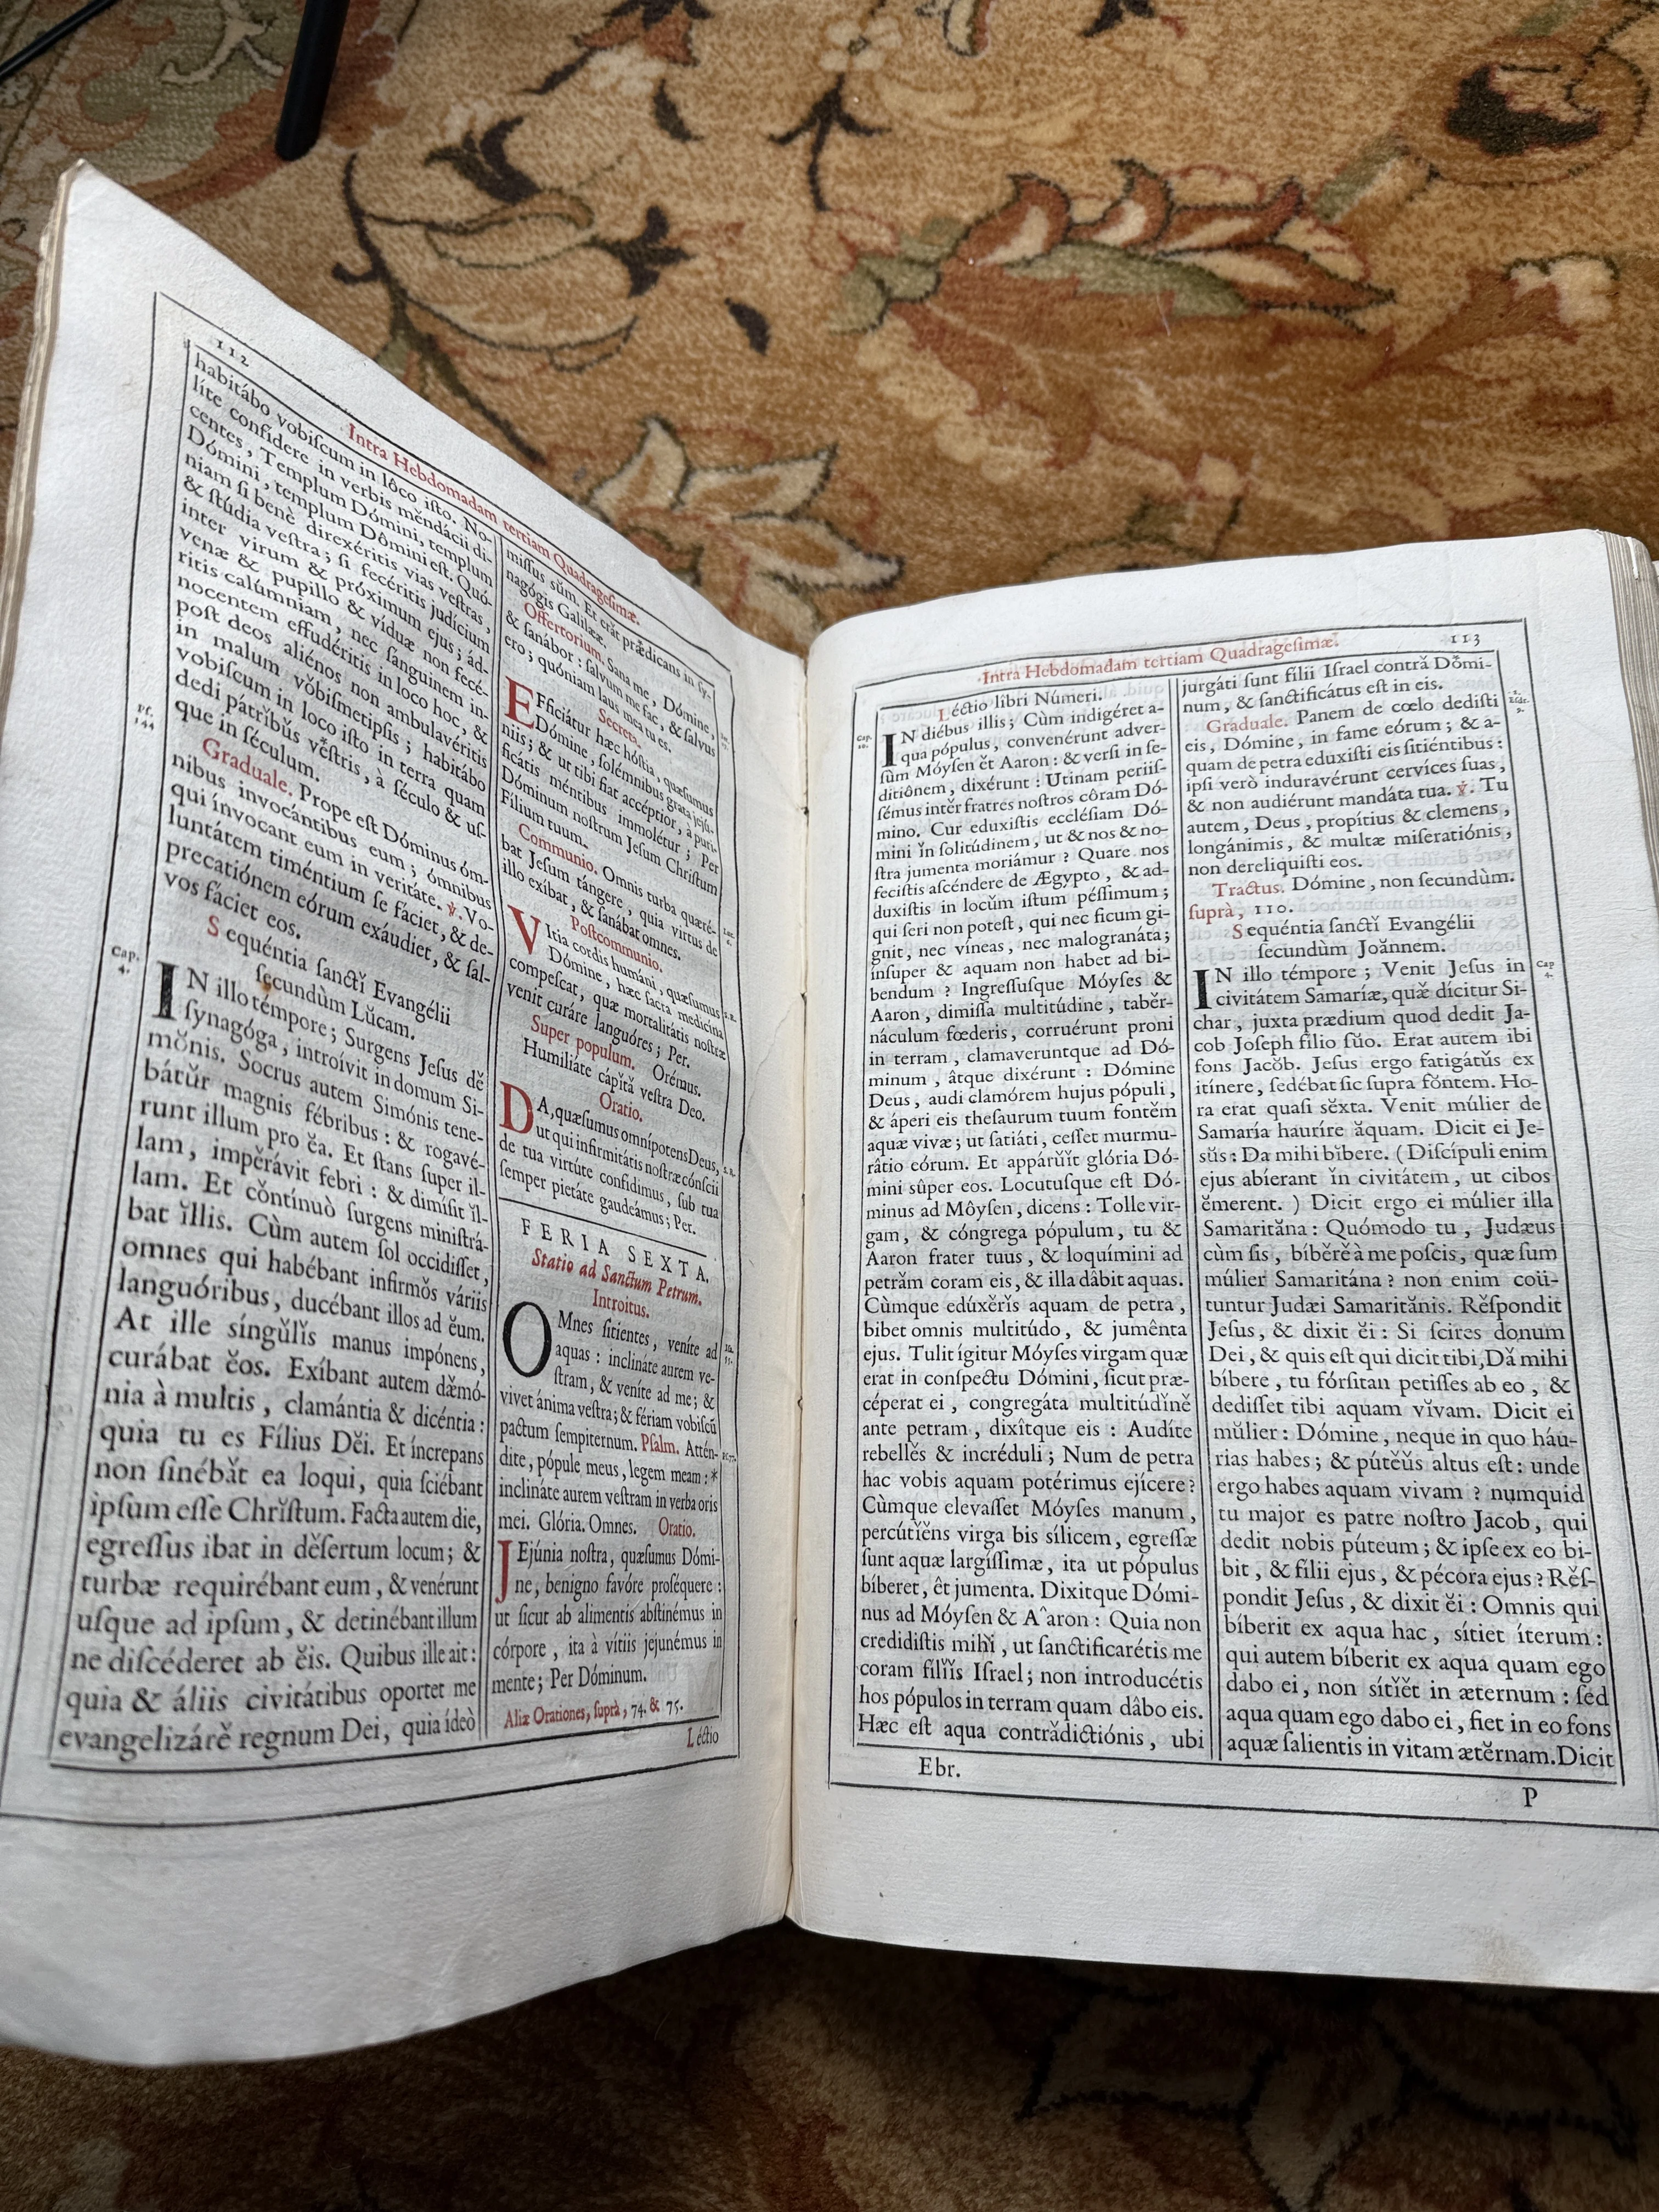 112
Intra Hebdomadam tertiam Quadragesimæ.
habitábo vobiſcum in lôco iſto. No-
líte confidere in verbis mĕndácii di-
centes, Templum Dómini, templum
Dómini, templum Dômini eſt. Quó-
niam ſi benè direxéritis vias veſtras,
& ſtúdia veſtra; ſi fecéritis judícium
inter virum & próximum ejus; ád-
venæ & pupíllo & víduæ non fecé-
ritis calúmniam, nec ſanguinem in-
nocentem effudéritis in loco hoc, &
poſt deos aliénos non ambulavéritis
in malum vŏbiſmetipſis; habitábo
vobiſcum in loco iſto in terra quam
dedi pátrĭbŭs vĕſtris, à ſéculo & uſ-
que in ſéculum.
Pſ.
144
Graduale. Prope eſt Dóminus óm-
nibus invocántibus eum; ómnibus
qui ínvocant eum in veritáte. ℣. Vo-
luntátem timéntium ſe fáciet, & de-
precatiónem eórum exáudiet, & ſal-
vos fáciet eos.
Sequéntia ſanctĭ Evangélii
ſecundùm Lŭcam.
Cap.
4.
IN illo témpore; Surgens Jeſus dĕ
ſynagóga, introívit in domum Si-
mŏnis. Socrus autem Simónis tene-
bátŭr magnis fébribus: & rogavé-
runt illum pro ĕa. Et ſtans ſuper il-
lam, impĕrávit febri: & dimíſit ĭl-
lam. Et cŏntínuò ſurgens miniſtrá-
bat ĭllis. Cùm autem ſol occidiſſet,
omnes qui habébant infirmŏs váriis
languóribus, ducébant illos ad ĕum.
At ille síngŭlĭs manus impónens,
curábat ĕos. Exíbant autem dæ̆mó-
nia à multis, clamántia & dicéntia:
quia tu es Fílius Dĕi. Et íncrepans
non ſinébăt ea loqui, quia ſciébant
ipſum eſſe Chrĭſtum. Facta autem die,
egreſſus ibat in dĕſertum locum; &
turbæ requirébant eum, & venérunt
uſque ad ipſum, & detinébant illum
ne diſcéderet ab ĕis. Quibus ille ait:
quia & áliis civitátibus oportet me
evangelizárĕ regnum Dei, quia ídeò
miſſus sŭm. Et erăt prædicans in ſy-
nagógis Galilææ.
Offertorium. Sana me, Dómine,
& ſanábor: ſalvum me fac, & ſalvus
ero; quóniam laus mea tu es.
Secreta.
EFficiátur hæc hóſtia, quæſumus
Dómine, ſolémnibus grata jejú-
niis; & ut tibi fiat accéptior, à puri-
ficátis méntibus immolétur; Per
Dóminum noſtrum Jeſum Chriſtum
Filium tuum.
Communio. Omnis turba quæré-
bat Jeſum tángere, quia virtus de
illo exíbat, & ſanábat omnes.
Poſtcommunio.
VItia cordis humáni, quæſumus
Dómine, hæc ſacra medicina
compeſcat, quæ mortalitátis noſtræ
venit curáre languóres; Per.
Super populum. Orémus.
Humiliáte cápĭtă veſtra Deo.
Oratio.
DA, quæſumus omnípotens Deus,
ut qui infirmitátis noſtræ cónſcii
de tua virtúte confidimus, ſub tua
ſemper pietáte gaudeámus; Per.
FERIA SEXTA.
Statio ad Sanctum Petrum.
Introitus.
OMnes ſitientes, veníte ad
aquas: inclináte aurem ve-
ſtram, & veníte ad me; &
vivet ánima veſtra; & fériam vobiſcũ
pactum ſempiternum. Pſalm. Attén-
dite, pópule meus, legem meam: *
inclináte aurem veſtram in verba oris
mei. Glória. Omnes. Oratio.
JEjúnia noſtra, quæſumus Dómi-
ne, benigno favóre proſéquere:
ut ſicut ab alimentis abſtinémus in
córpore, ita à vítiis jejunémus in
mente; Per Dóminum.
Aliæ Orationes, ſuprà, 74. & 75.
Léctio
Intra Hebdomadam tertiam Quadrageſimæ.
113
Léctio libri Númeri.
Cap.
20.
IN diébus illis; Cùm indigéret a-
qua pópulus, convenérunt adver-
ſùm Móyſen ĕt Aaron: & verſi in ſe-
ditiônem, dixérunt: Utinam periiſ-
ſémus intĕr fratres noſtros côram Dó-
mino. Cur eduxiſtis eccléſiam Dó-
mini ĭn ſolitúdinem, ut & nos & no-
ſtra jumenta moriámur? Quare nos
feciſtis aſcéndere de Ægypto, & ad-
duxiſtis in locŭm iſtum péſſimum;
qui ſeri non poteſt, qui nec ficum gi-
gnit, nec víneas, nec malogranáta;
ínſuper & aquam non habet ad bi-
bendum? Ingreſſuſque Móyſes &
Aaron, dimíſſa multitúdine, tabĕr-
náculum fœderis, corruérunt proni
in terram, clamaveruntque ad Dó-
minum, âtque dixérunt: Dómine
Deus, audi clamórem hujus pópuli,
& áperi eis theſaurum tuum fontĕm
aquæ vivæ; ut ſatiáti, ceſſet murmu-
râtio eórum. Et appárŭĭt glória Dó-
mini sûper eos. Locutuſque eſt Dó-
minus ad Môyſen, dicens: Tolle vir-
gam, & cóngrega pópulum, tu &
Aaron frater tuus, & loquímini ad
petrăm coram eis, & illa dâbit aquas.
Cùmque edúxĕrĭs aquam de petra,
bibet omnis multitúdo, & jumênta
ejus. Tulit ígitur Móyſes virgam quæ
erat in conſpectu Dómini, ſicut præ-
céperat ei, congregáta multitúdĭnĕ
ante petram, dixîtque eis: Audíte
rebellĕs & incréduli; Num de petra
hac vobis aquam potérimus ejícere?
Cùmque elevaſſet Móyſes manum,
percútĭĕns virga bis sílicem, egreſſæ
ſunt aquæ largíſſimæ, ita ut pópulus
bíberet, êt jumenta. Dixitque Dómi-
nus ad Móyſen & A^aron: Quia non
credidiſtis mihĭ, ut ſanctificarétis me
coram filĭĭs Iſrael; non introducétis
hos pópulos in terram quam dâbo eis.
Hæc eſt aqua contrădictiónis, ubi
Ebr.
jurgáti ſunt filii Iſrael contră Dŏmi-
num, & ſanctificátus eſt in eis.
Graduale. Panem de cœlo dediſti
eis, Dómine, in fame eórum; & a-
quam de petra eduxiſti eis ſitiéntibus:
ipſi verò induravérunt cervíces ſuas,
& non audiérunt mandáta tua. ℣. Tu
autem, Deus, propítius & clemens,
longánimis, & multæ miſeratiónis,
non dereliquiſti eos.
Tractus. Dómine, non ſecundùm.
ſuprà, 110.
Sequéntia ſanctĭ Evangélii
ſecundùm Joănnem.
Cap
4.
IN illo témpore; Venit Jeſus in
civitátem Samaríæ, quæ̆ dícitur Si-
char, juxta prædium quod dedit Ja-
cob Joſeph filio ſŭo. Erat autem ibi
fons Jacŏb. Jeſus ergo fatigátŭs ex
itínere, ſedébat ſic ſupra fŏntem. Ho-
ra erat quaſi sĕxta. Venit múlier de
Samaría hauríre ăquam. Dicit ei Je-
sŭs: Da mihi bĭbere. (Diſcípuli enim
ejus abíerant ĭn civitátem, ut cibos
ĕmerent.) Dicit ergo ei múlier illa
Samarităna: Quómodo tu, Judæus
cùm ſis, bíbĕrĕ à me poſcis, quæ ſum
múlier Samaritána? non enim coü-
tuntur Judæi Samaritănis. Rĕſpondit
Jeſus, & dixit ĕi: Si ſcires donum
Dei, & quis eſt qui dicit tibi, Dă mihi
bíbere, tu fórſitan petíſſes ab eo, &
dediſſet tibi aquam vĭvam. Dicit ei
mŭlier: Dómine, neque in quo háu-
rias habes; & pútĕŭs altus eſt: unde
ergo habes aquam vivam? numquid
tu major es patre noſtro Jacob, qui
dedit nobis púteum; & ipſe ex eo bi-
bit, & filii ejus, & pécora ejus? Rĕſ-
pondit Jeſus, & dixit ĕi: Omnis qui
bíberit ex aqua hac, sítiet íterum:
qui autem bíberit ex aqua quam ego
dabo ei, non sítĭĕt in æternum: ſed
aqua quam ego dabo ei, fiet in eo fons
aquæ ſalientis in vitam ætĕrnam. Dicit
P